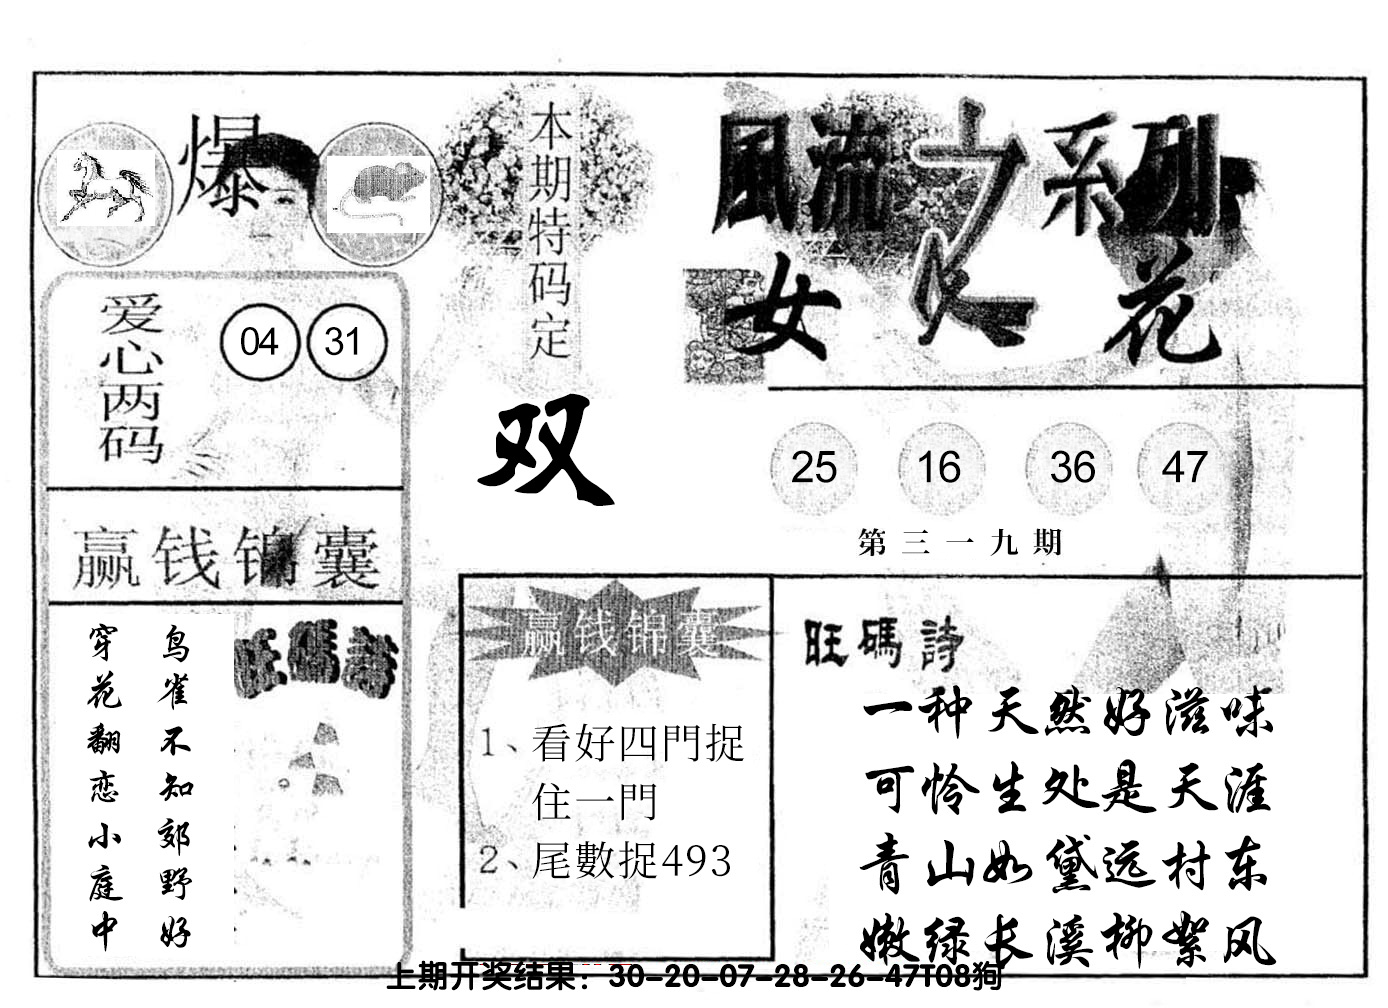 爆
本期特码定
双
風流之系列
女人花
爱心两码
04 31
25 16 36 47
第三一九期
赢钱锦囊
鸟雀不知郊野好
穿花翻恋小庭中
旺碼詩
赢钱锦囊
1、看好四門捉
住一門
2、尾數捉493
旺碼詩
一种天然好滋味
可怜生处是天涯
青山如黛远村东
嫩绿长溪柳絮风
上期开奖结果：30-20-07-28-26-47T08狗